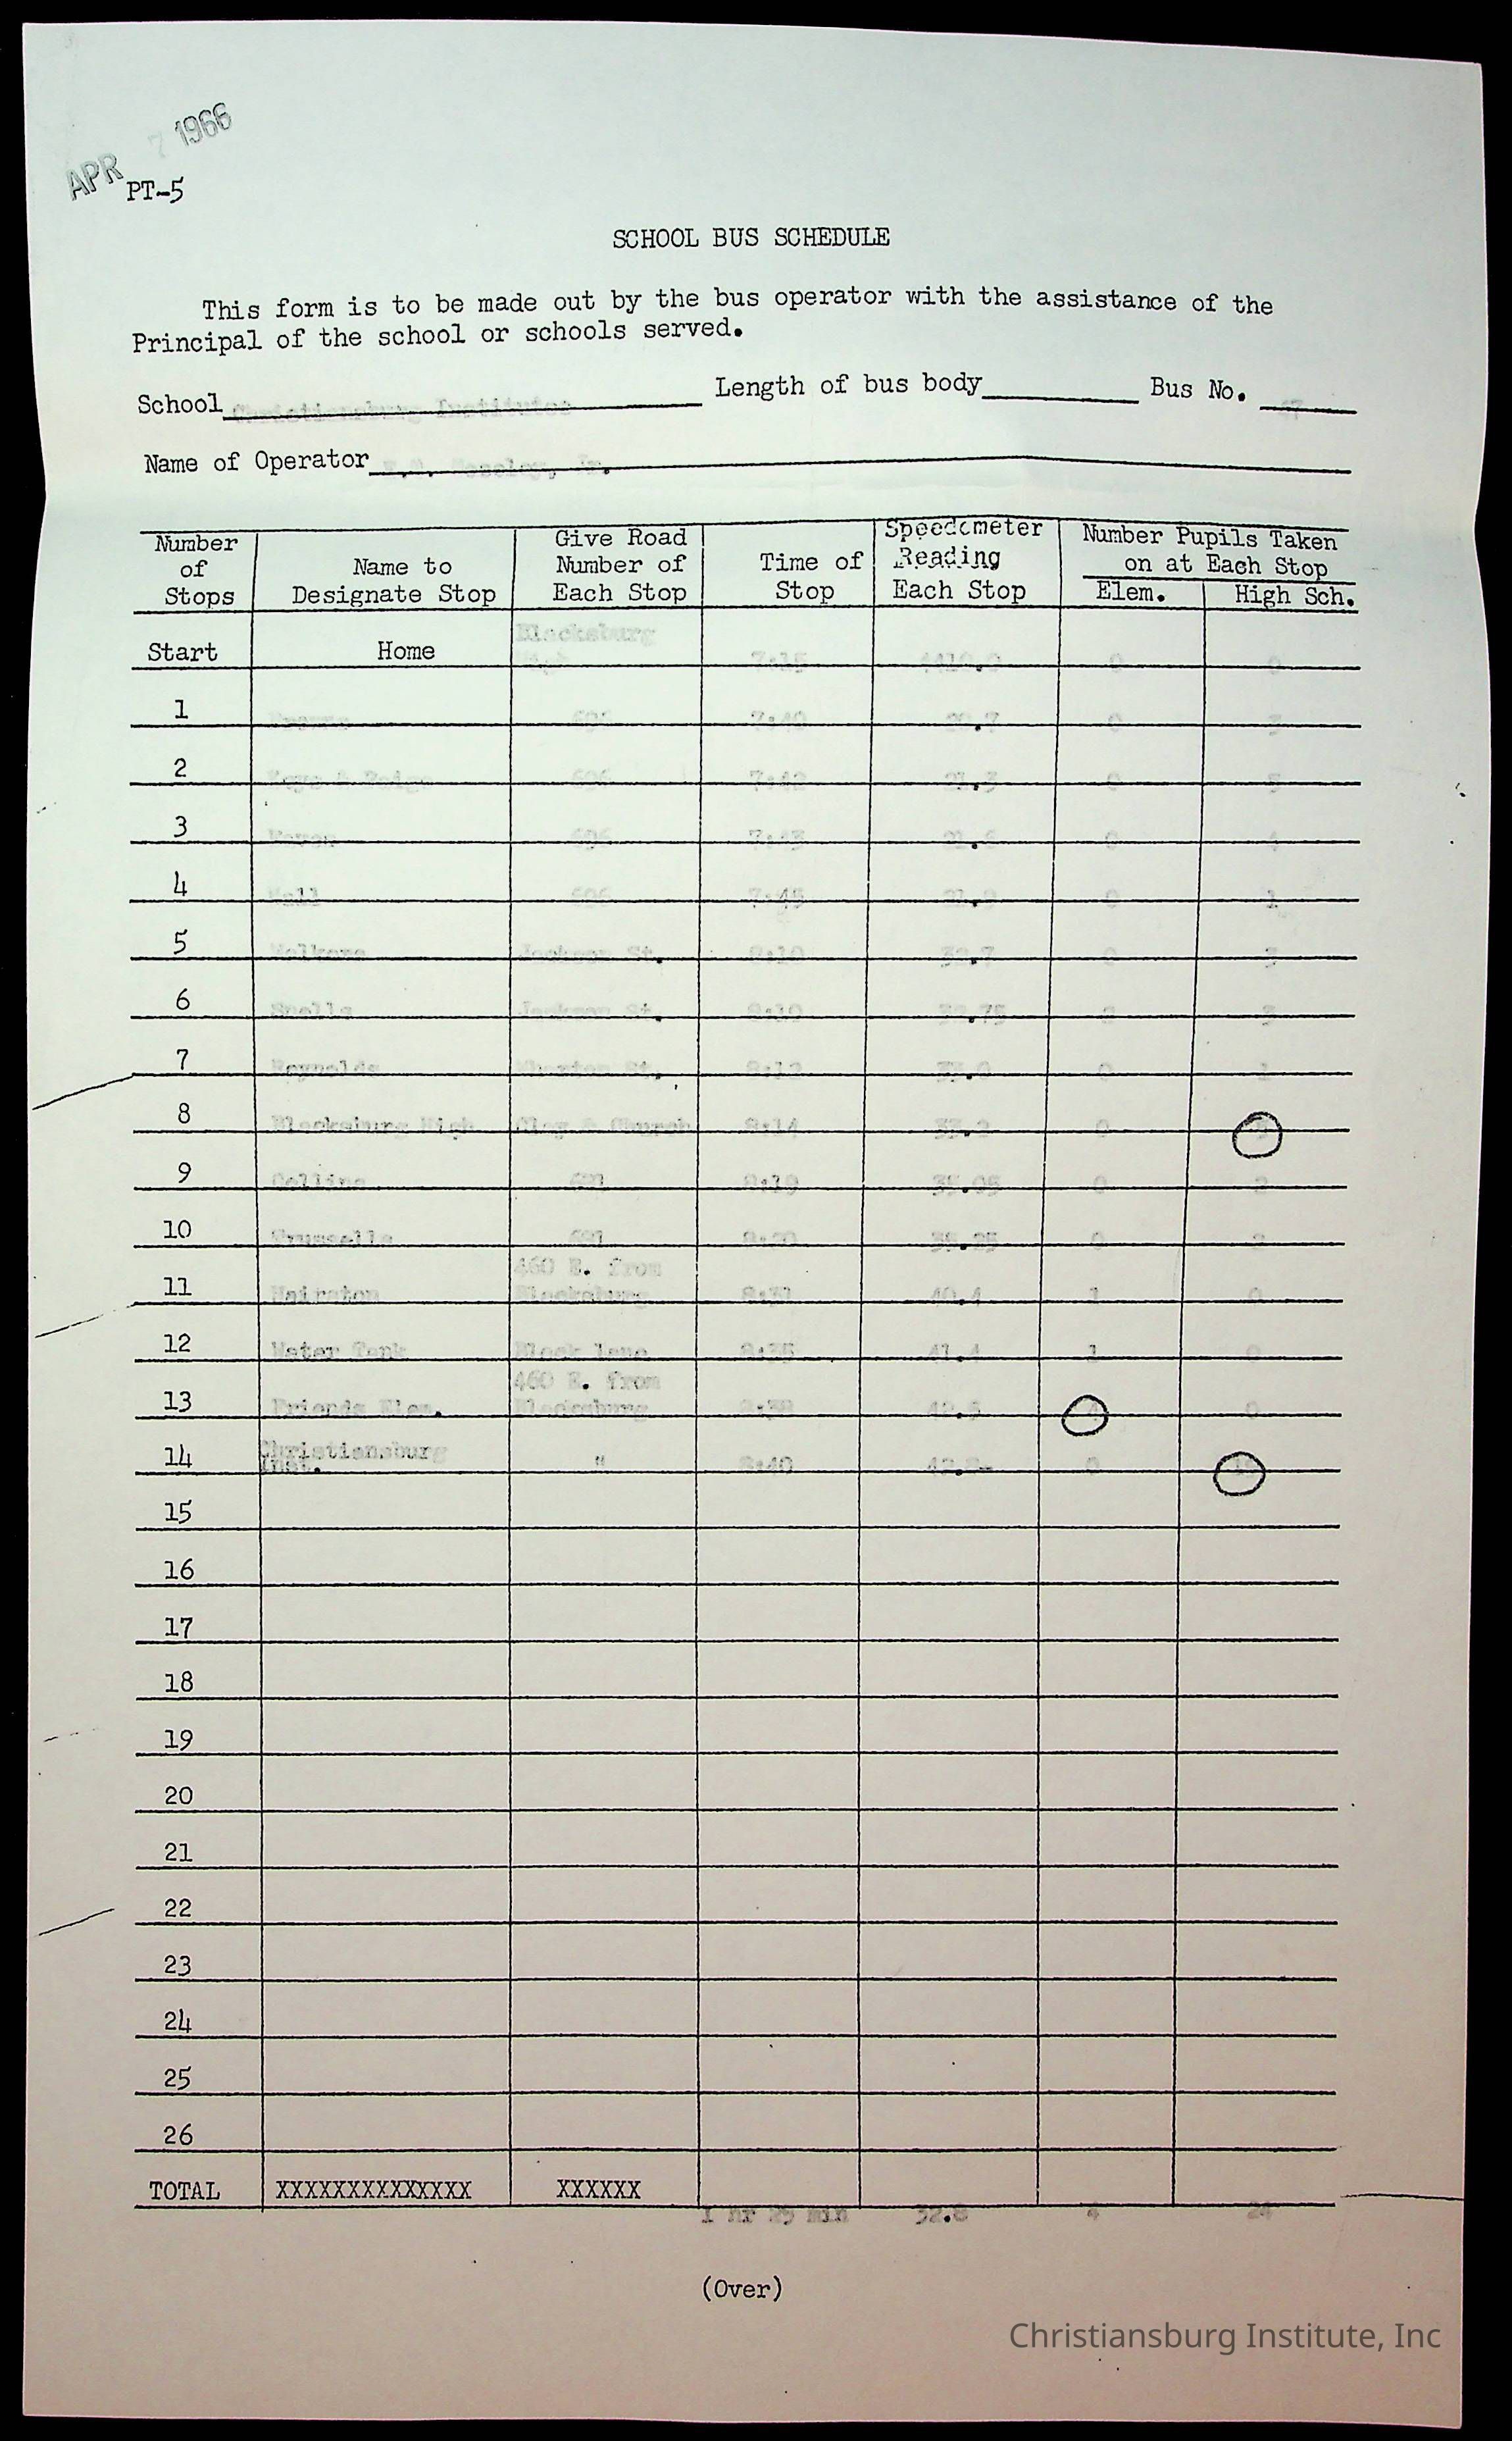 APR 7 1966
PT-5
SCHOOL BUS SCHEDULE
This form is to be made out by the bus operator with the assistance of the
Principal of the school or schools served.
School Christiansburg Institute Length of bus body Bus No.
Name of Operator Jr.
Number of Stops Name to Designate Stop Give Road Number of Each Stop Time of Stop Speedometer Reading Each Stop Number Pupils Taken on at Each Stop Elem. High Sch.
Start Home Blacksburg High 7:15 0 0
1 7:40 20.7 0 3
2 696 7:42 21.3 0 5
3 696 7:43 21.6 0 4
4 696 7:45 21.9 0 1
5 Jackson St. 8:10 32.7 0 3
6 Snells Jackson St. 8:10 32.75 2 3
7 Reynolds St. 8:12 33.0 0 1
8 Blacksburg High Clay & Church 8:14 33.2 0
9 Collins 8:19 35.05 0 2
10 8:20 35.25 0 2
11 Hairston 460 E. from Blacksburg 8:31 40.4 1 0
12 Water Tank lane 8:35 41.4 1 0
13 Friends Elem. 460 E. from Blacksburg 8:38 42.5 0
14 Christiansburg Inst. " 8:40 42.8 0
15
16
17
18
19
20
21
22
23
24
25
26
TOTAL XXXXXXXXXXXXXX XXXXXX
1 hr 25 min 32.8 4 24
(Over)
Christiansburg Institute, Inc